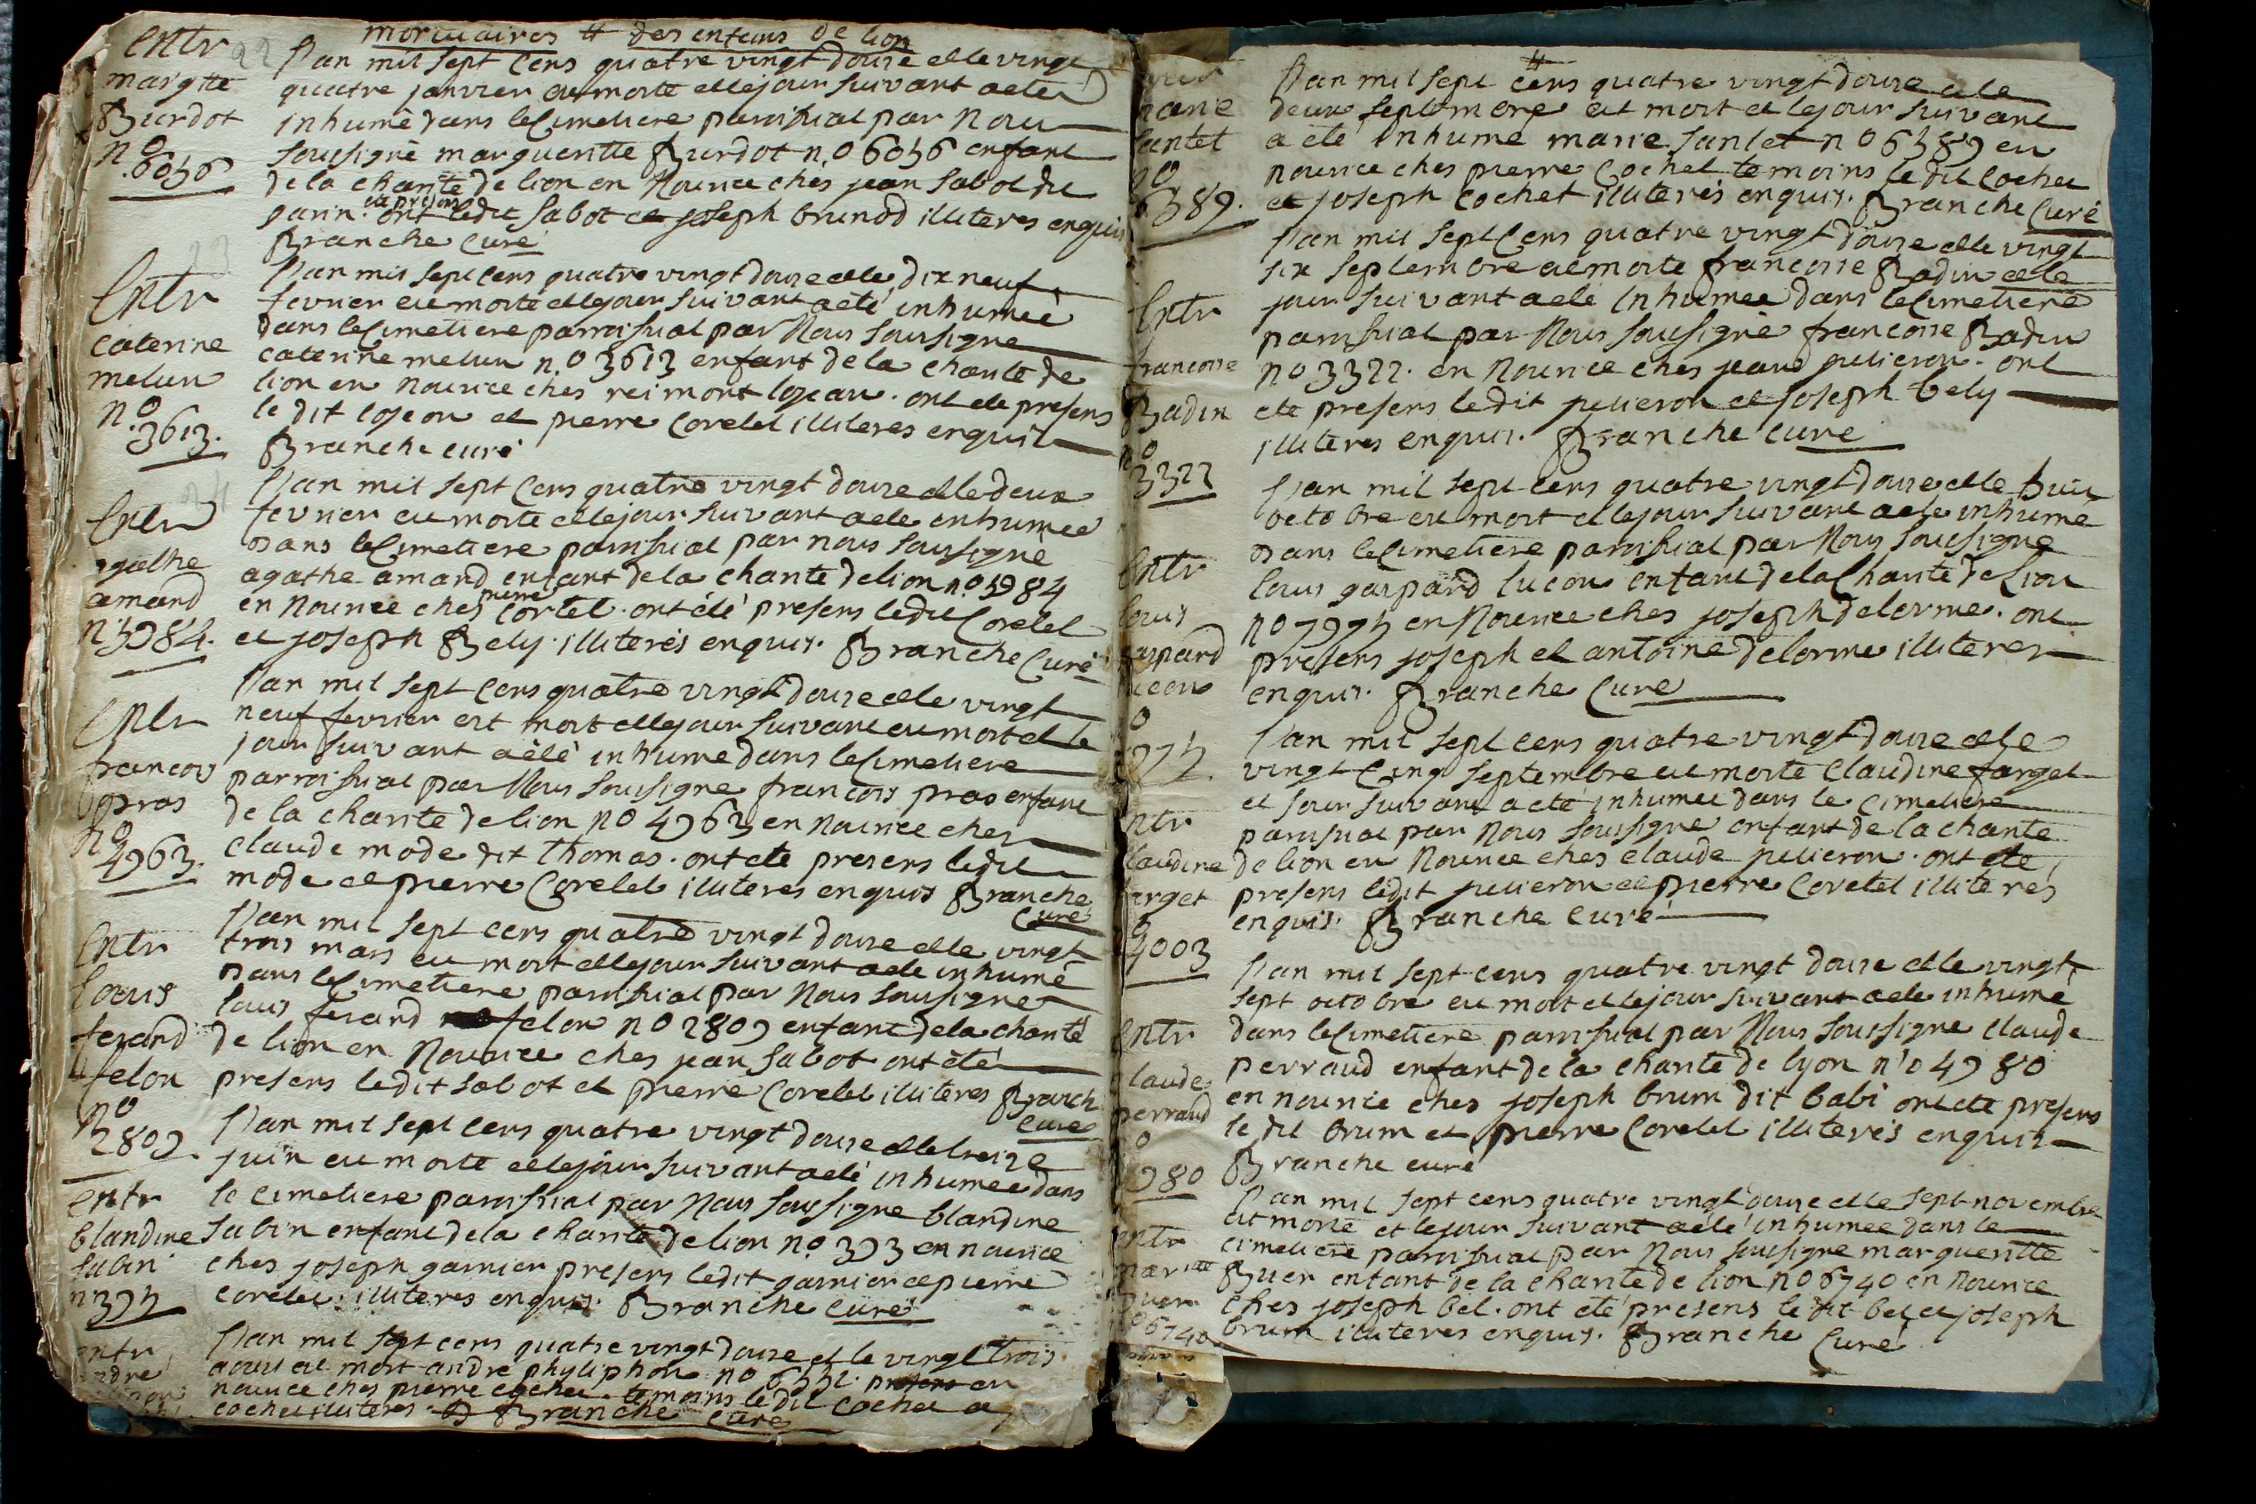 mortuaires # des enfans de lion
Entr
margtte
Burdot
n°
6056
L'an mil sept cens quatre vingt douze et le vingt
quatre janvier est morte et le jour suivant a été
inhumé dans le cimetiere paroissial par Nous
soussigné margueritte Burdot n.o 6056 enfant
de la charité de lion en Nource ches jean sabot du
ont le dit sabot et joseph brunod illiteres enquis
Branche curé
Entr
caterine
melun
n°
3613.
L'an mil sept cens quatre vingt douze et le dix neuf
fevrier est morte et le jour suivant a eté inhumée
dans le cimetiere parroissial par Nous soussigné
caterine melun n.o 3613 enfant de la charité de
lion en nource ches reimont lozeau. ont ete presens
le dit lozeon et pierre Coretel illiteres enquis
Branche curé
Entr
agathe
amand
n° 5984.
L'an mil sept cens quatre vingt douze et le deux
fevrier est morte et le jour suivant a ete inhumée
dans le cimetiere paroissial par nous soussigné
agathe amand enfant de la charité de lion n.o 5984
en Nource ches pierre Cortel. ont été presens le dit Coretel
et joseph Bely. illiterés enquis. Branche Curé
Entr
francois
pras
n°
4963.
L'an mil sept cens quatre vingt douze et le vingt
neuf fevrier est mort et le jour suivant est mort et le
jour suivant a été inhumé dans le cimetiere
parroissial par Nous soussigné francois pras enfant
de la charité de lion n.o 4963 en nource ches
claude mode dit thomas. ont eté presens le dit
mode et pierre Coretel illiteres enquis Branche
Curé
Entr
Louis
ferand
felon
n°
2809.
L'an mil sept cens quatre vingt douze et le vingt
trois mars est mort et le jour suivant a ete inhumé
dans le cimetiere paroissial par Nous soussigné
louis ferand felon n.o 2809 enfant de la charité
de lion en Nource ches jean sabot ont été
presens le dit sabot et pierre Coretel illiteres Branch
Curé
Entr
blandine
sabin
n 393
L'an mil sept cens quatre vingt douze et le treize
juin est morte et le jour suivant a eté inhumée dans
le cimetiere paroissial par Nous soussigné blandine
sabin enfant de la charité de lion n.o 393 en nource
ches joseph garnier presens le dit garnier et pierre
coretel. illiteres enquis. Branche curé
entr
andre
L'an mil sept cens quatre vingt douze et le vingt trois
aoust est mort andre phyliphon n.o 6552. presens en
nource ches pierre cochet. temoins le dit cochet et
cochet illiteres. Branche curé
#
marie
santet
n°
6389.
L'an mil sept cens quatre vingt douze et le
deux septembre est mort et le jour suivant
a été inhumé marie santet n.o 6389 en
nource ches pierre Cochet temoins le dit cochet
et joseph cochet illiterés enquis. Branche Curé
Entr
francoise
Badin
n°
3322
L'an mil sept cens quatre vingt douze et le vingt
six septembre est morte francoise Badin et le
jour suivant a eté inhumée dans le cimetiere
paroissial par Nous soussigné francoise Badin
n.o 3322. en Nource ches jean pulieron. ont
eté presens le dit pulieron et joseph bely
illiteres enquis. Branche curé
Entr
Louis
gaspard
lucon
L'an mil sept cens quatre vingt douze et le huit
octobre est mort et le jour suivant a ete inhumé
dans le cimetiere paroissial par Nous soussigné
louis gaspard lucon enfant de la Charité de Lion
n.o 7975 en Nource ches joseph delorme. ont
presens joseph et antoine delorme illiteres
enquis. Branche Curé
Entr
Claudine
farget
4003
L'an mil sept cens quatre vingt douze et le
vingt cinq septembre est morte claudine farget
et jour suivant a eté inhumée dans le cimetiere
paroissial par Nous soussigné enfant de la charité
de lion en Nource ches claude pulieron. ont eté
presens le dit pulieron et pierre Coretel illiterés
enquis. Branche curé
Entr
claude
perraud
n°
4980
L'an mil sept cens quatre vingt douze et le vingt
sept octobre est mort et le jour suivant a ete inhumé
dans le cimetiere paroissial par Nous soussigné claude
perraud enfant de la charité de lyon n.o 4980
en nource ches joseph brun dit babi ont ete presens
le dit brun et pierre Coretel illiterés enquis
Branche curé
entr
margtte
Buer
6740
L'an mil sept cens quatre vingt douze et le sept novembre
est morte et le jour suivant a eté inhumée dans le
cimetiere paroissial par Nous soussigné margueritte
Buer enfant de la charité de lion n.o 6740 en Nource
ches joseph bel. ont eté presens le dit bel et joseph
brun illiteres enquis. Branche Curé